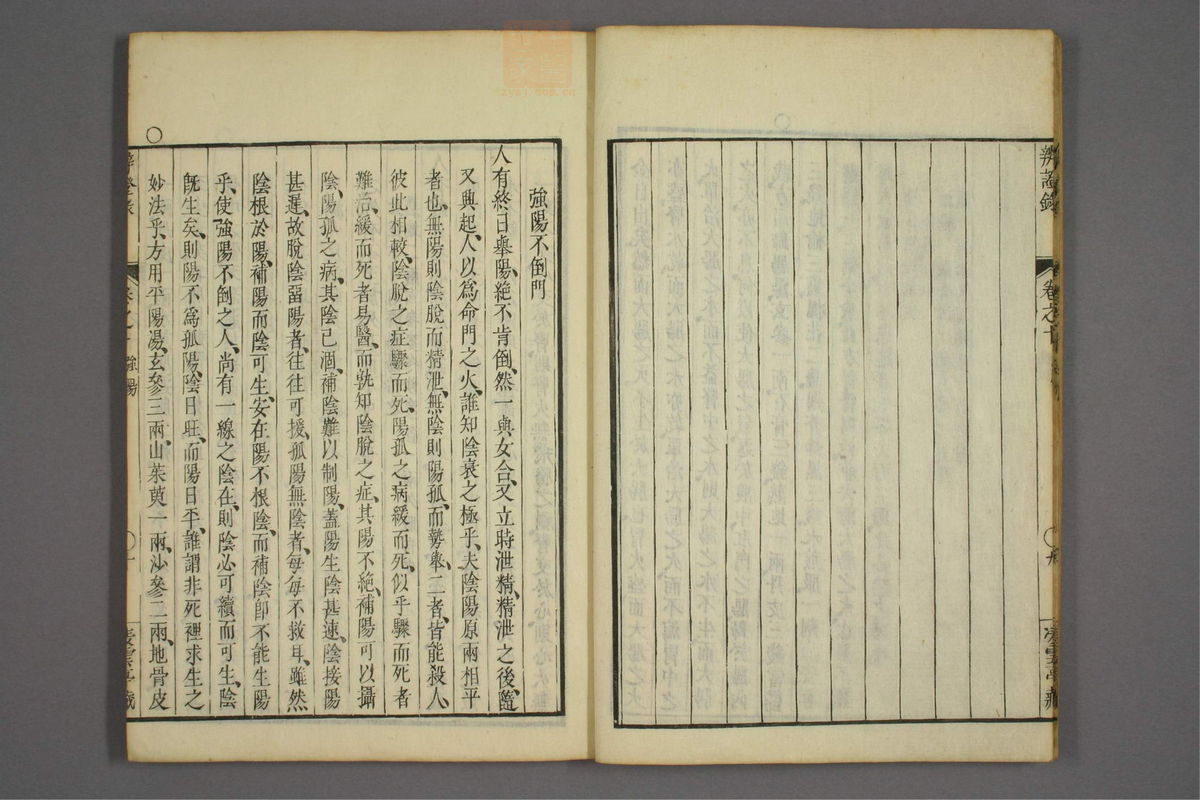 辨證錄 卷之十
強陽不倒門
人有終日舉陽絕不肯倒、然一與女合、又立時泄精、精泄之後、隨
又興起、人以爲命門之火、誰知陰衰之極乎、夫陰陽原兩相平
者也、無陽則陰脫而精泄、無陰則陽孤、而勢舉、二者、皆能殺人、
彼此相較、陰脫之症驟而死、陽孤之病緩而死、似乎驟而死者
難治、緩而死者易醫、而孰知陰脫之症、其陽不絕、補陽可以攝
陰、陽孤之病、其陰已涸、補陰難以制陽、蓋陽生陰甚速、陰接陽
甚遲、故脫陰畱陽者、往往可援、孤陽無陰者、每每不救耳、雖然
陰根於陽、補陽而陰可生、安在陽不根陰、而補陰卽不能生陽
乎、使強陽不倒之人、尚有一線之陰在、則陰必可續而可生、陰
旣生矣、則陽不爲孤陽、陰日旺、而陽日平、誰謂非死裡求生之
妙法乎、方用平陽湯、玄參三兩、山茱萸一兩、沙參二兩、地骨皮
強陽